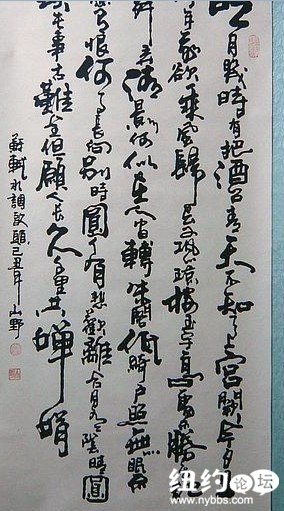 明月幾時有把酒问青天不知天上宮闕今夕
年我欲乘風歸去又恐瓊樓玉宇高處不勝寒
舞弄清影何似在人間轉朱閣低綺户照無眠
有恨何事長向别時圓人有悲歡離合月有陰晴圓
此事古難全但願人長久千里共嬋娟
蘇軾水調歌頭己丑年山野
纽约论坛
www.nybbs.com